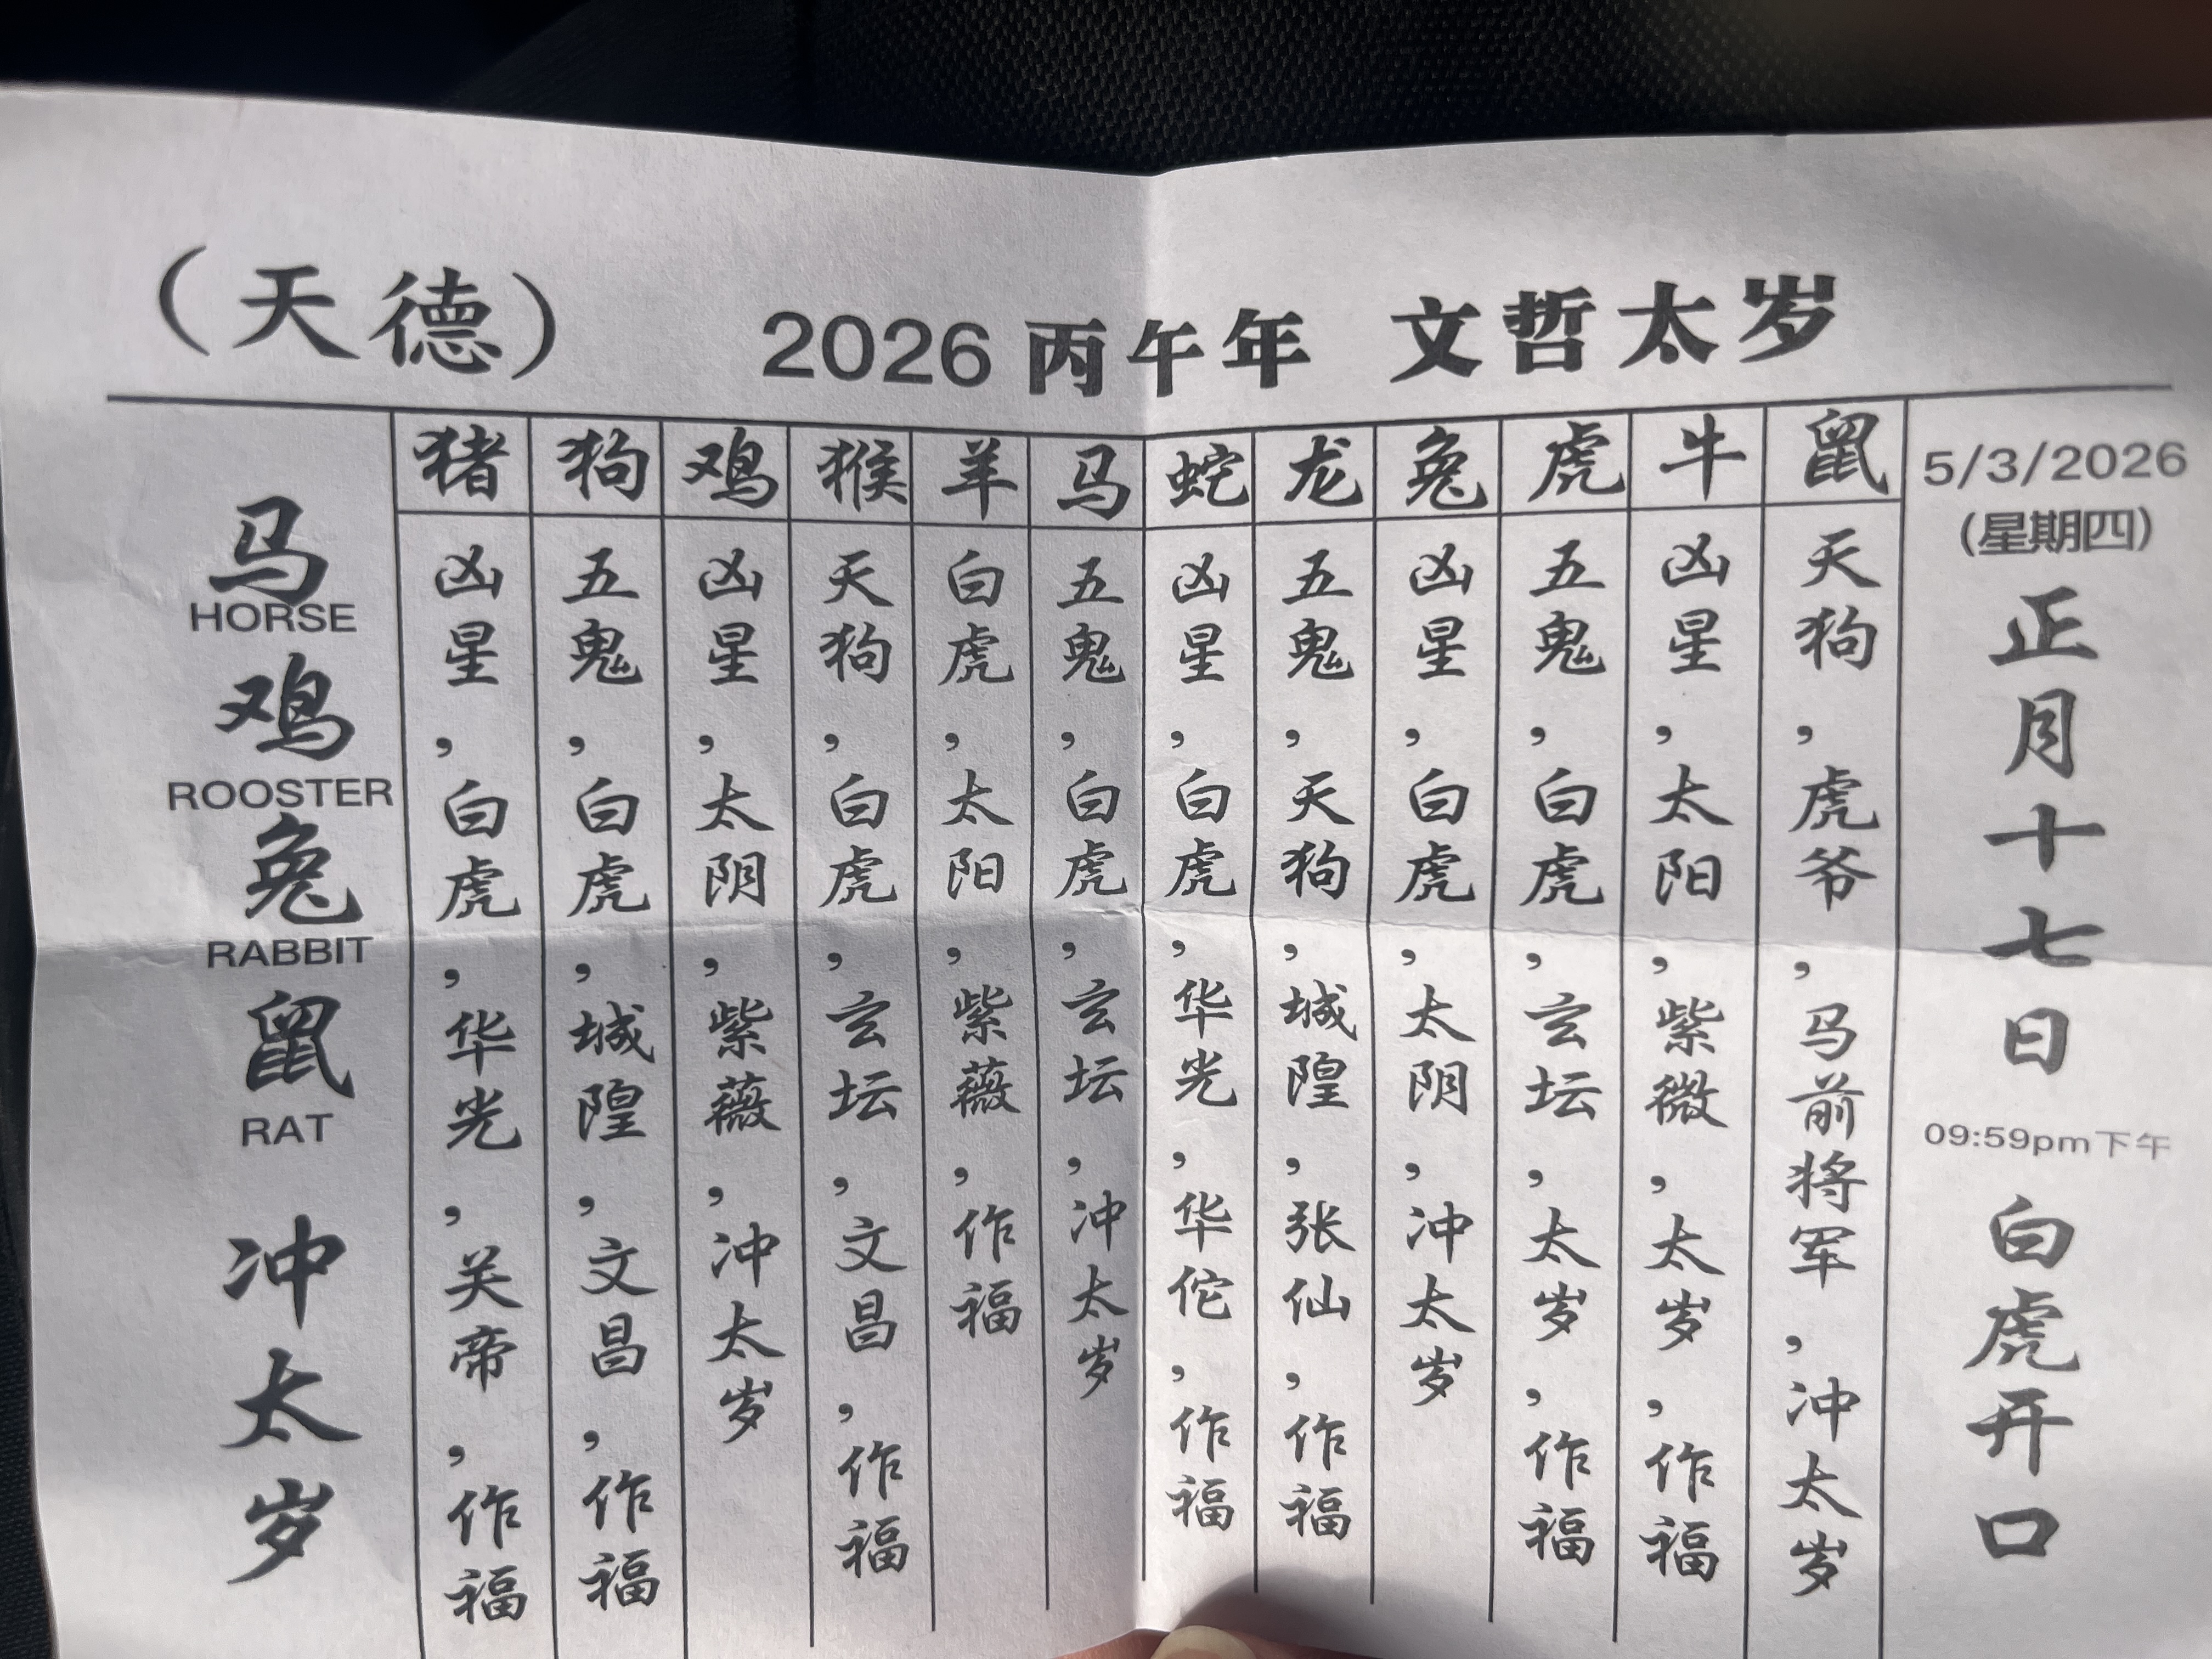 （天德） 2026 丙午年 文哲太岁
5/3/2026
（星期四）
正月十七日
09:59pm下午
白虎开口
鼠 天狗，虎爷，马前将军，冲太岁
牛 凶星，太阳，紫微，太岁，作福
虎 五鬼，白虎，玄坛，太岁，作福
兔 凶星，白虎，太阴，冲太岁
龙 五鬼，天狗，城隍，张仙，作福
蛇 凶星，白虎，华光，华佗，作福
马 五鬼，白虎，玄坛，冲太岁
羊 白虎，太阳，紫薇，作福
猴 天狗，白虎，玄坛，文昌，作福
鸡 凶星，太阴，紫薇，冲太岁
狗 五鬼，白虎，城隍，文昌，作福
猪 凶星，白虎，华光，关帝，作福
马
HORSE
鸡
ROOSTER
兔
RABBIT
鼠
RAT
冲太岁